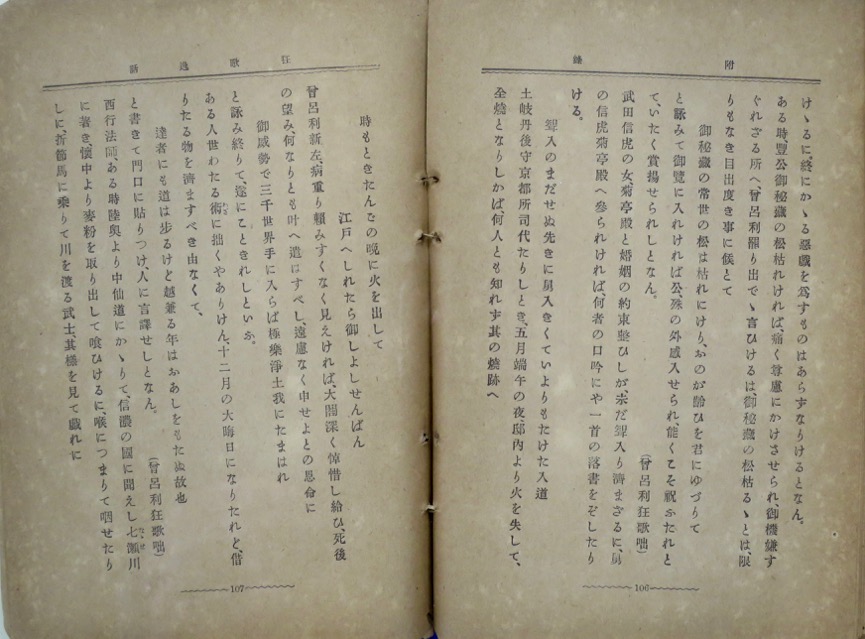 附錄
けゝるに、終にかゝる惡戲を爲すものはあらずなりけるとなん。
ある時、豐公御秘藏の松枯れければ、痛く尊慮にかけさせられ、御機嫌す
ぐれざる所へ、曾呂利罷り出でゝ言ひけるは、御秘藏の松枯るゝとは、限
りもなき目出度き事に候とて
御秘藏の常世の松は枯れにけり、おのが齡ひを君にゆづりて
と詠みて御覽に入れければ、公、殊の外感入せられ、能くこそ祝ふたれと
て、いたく賞揚せられしとなん。
(曾呂利狂歌咄)
武田信虎の女、菊亭殿と婚姻の約束整ひしが、未だ聟入り濟まざるに、舅
の信虎菊亭殿へ參られければ、何者の口吟にや一首の落書をぞしたり
ける。
聟入のまだせぬ先きに舅入きくていよりもたけた入道
土岐丹後守京都所司代たりしとき、五月端午の夜、邸內より火を失して、
全燒となりしかば何人とも知れず其の燒跡へ
106
狂歌逸話
時もときたんごの晩に火を出して
江戸へしれたら御しよしせんばん
曾呂利新左、病重り賴みすくなく見えければ、大閤深く悼惜し給ひ、死後
の望み、何なりとも叶へ遣はすべし、遠慮なく申せよとの恩命に
御威勢で三千世界手に入らば極樂淨土我にたまはれ
と詠み終りて、遂にこときれしといふ。
ある人世わたる術に拙くやありけん、十二月の大晦日になりたれど、借
りたる物を濟ますべき由なくて、
達者にも道は步るけど越兼る年はおあしをもたぬ故也
と書きて門口に貼りつけ、人に言譯せしとなん。
(曾呂利狂歌咄)
西行法師、ある時陸奧より中仙道にかゝりて、信濃の國に聞えし七瀨川
に著き、懷中より麥粉を取り出して喰ひけるに、喉につまりて咽せたり
しに、折節馬に乘りて川を渡る武士、其樣を見て戲れに
107